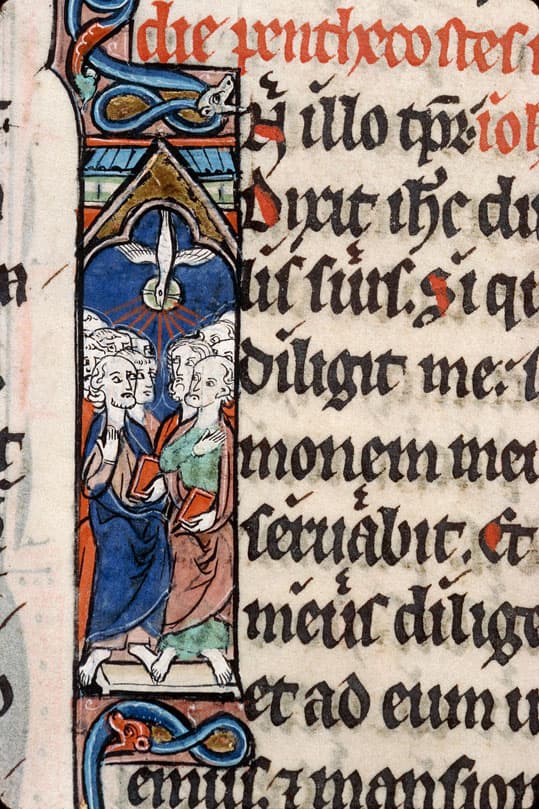 die penthecostes
N illo tp̄r. ioh
Dixit ih̄c di
lis suis. Si qi
diligit me.
monem meu
seruabit. Et
meus dilige
et ad eum u
emus. ⁊ mansion